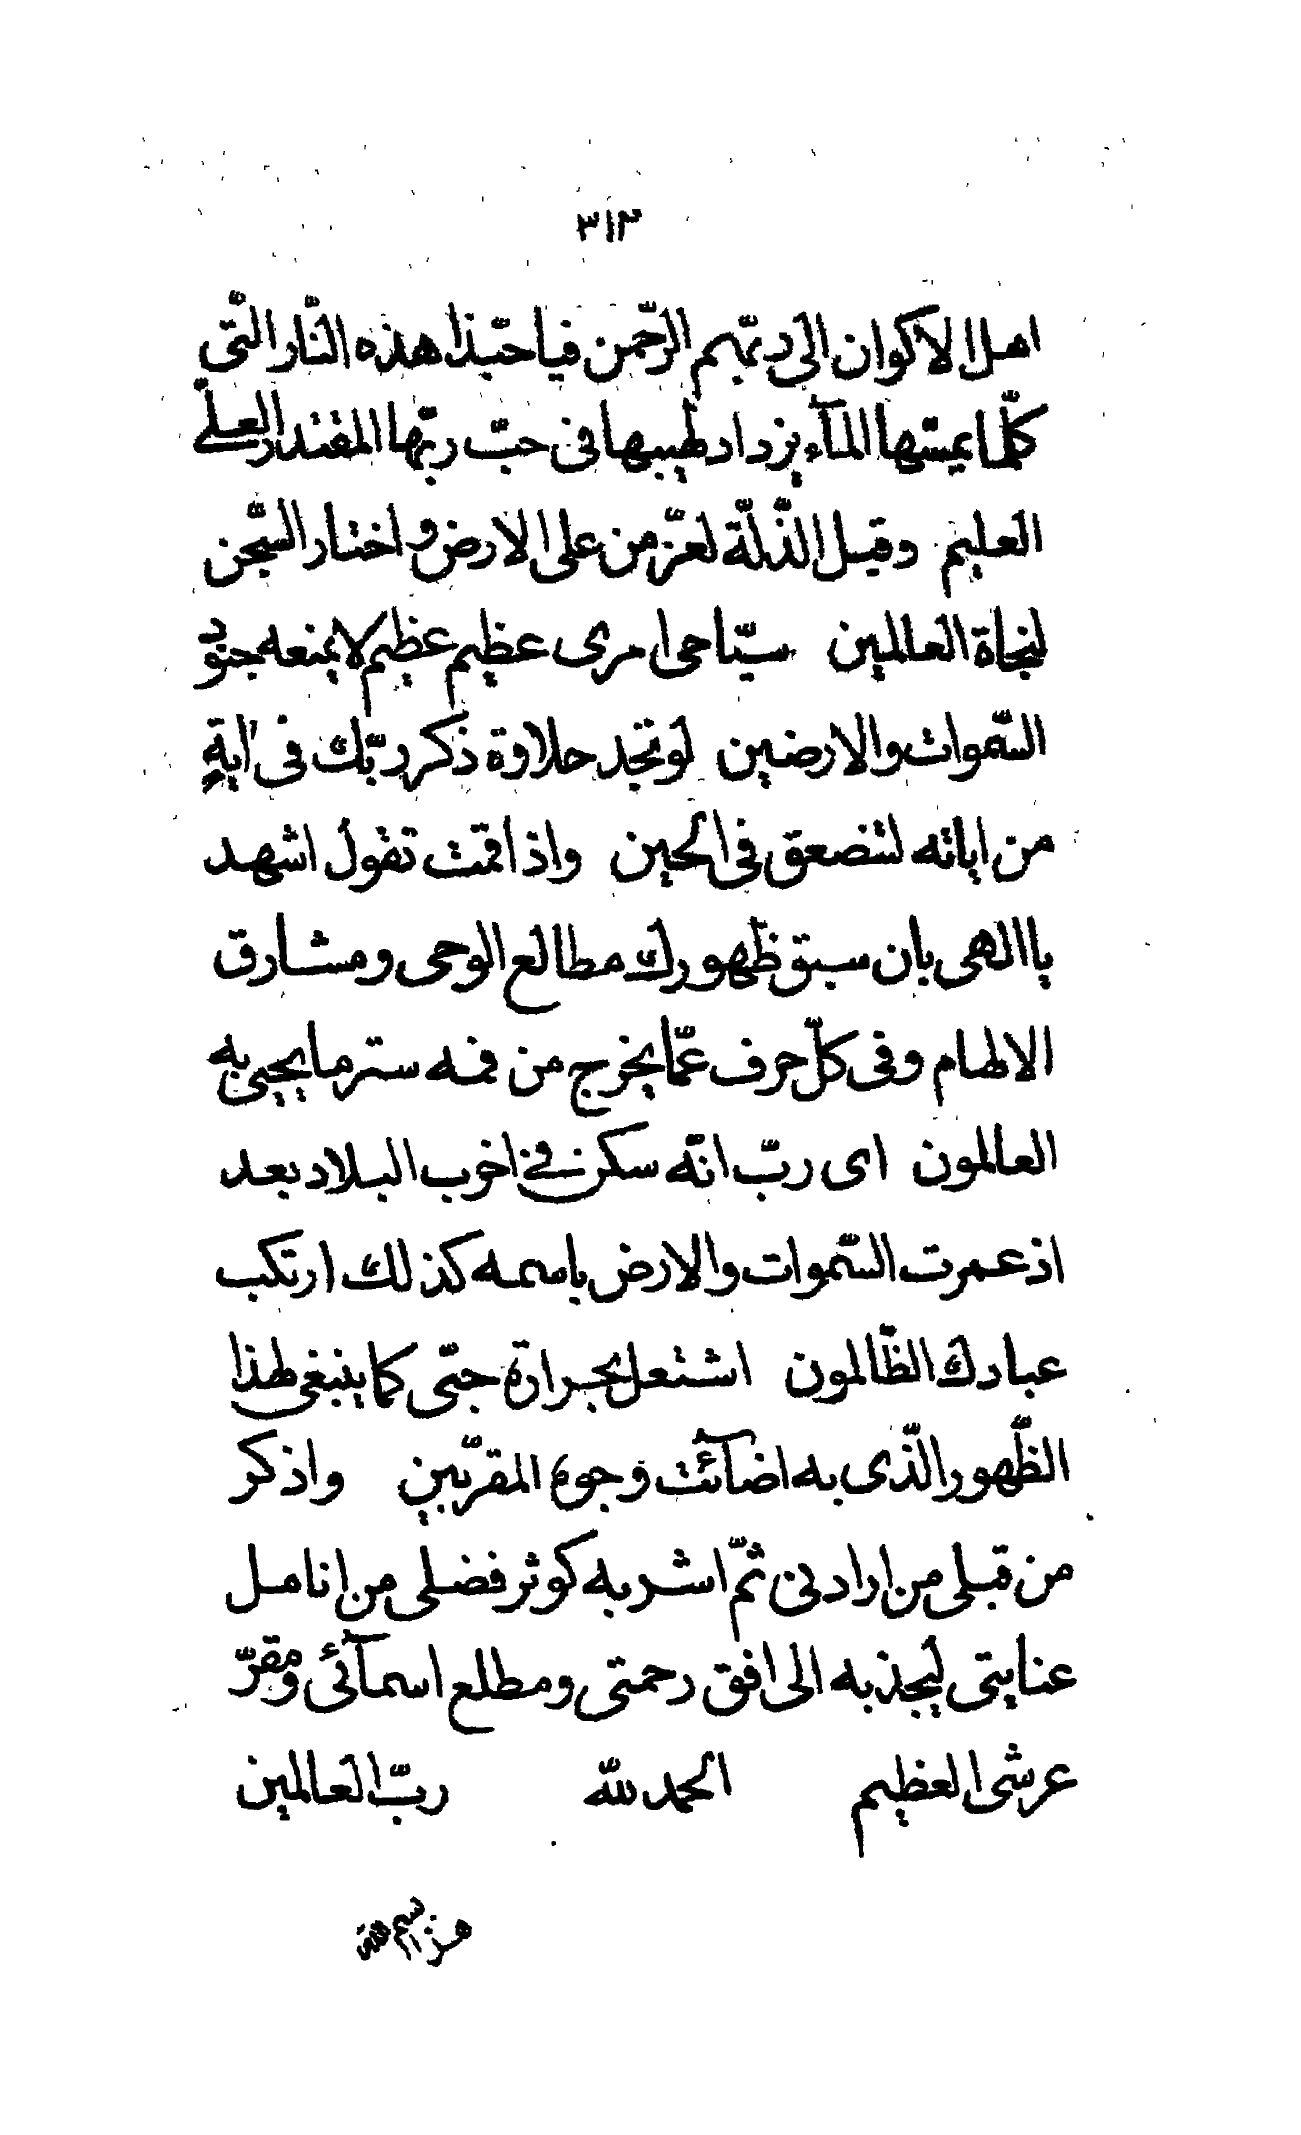 ٣١٣
اهل الاكوان الى ربّهم الرّحمن فيا حبّذا هذه النّار الّتى
كلّما يمسّها المآء يزداد لهيبها فى حبّ ربّها المقتدر العلىّ
العليم وقبل الذّلّة لعزّ من على الارض و اختار السّجن
لنجاة العالمين سيّاحى امرى عظيم عظيم لا يمنعه جنود
السّموات والارضين لو تجد حلاوة ذكر ربّك فى اية
من اياته لتنصعق فى الحين واذا قمت تقول اشهد
يا الهى بان سبق ظهورك مطالع الوحى ومشارق
الالهام وفى كلّ حرف عمّا يخرج من فمه ستر ما يحيى به
العالمون اى ربّ انّه سكن فى اخرب البلاد بعد
اذ عمرت السّموات والارض باسمه كذلك ارتكب
عبادك الظّالمون اشتعل بحرارة حبّى كما ينبغى لهذا
الظّهور الّذى به اضآئت وجوه المقرّبين واذكر
من قبلى من ارادنى ثمّ اشربه كوثر فضلى من انامل
عنايتى ليجذبه الى افق رحمتى ومطلع اسمآئى ومقرّ
عرشى العظيم الحمد لله ربّ العالمين